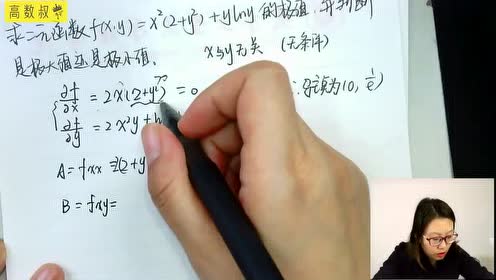 高数叔
求二元函数f(x,y)=x²(2+y²)+ylny的极值,并判断
是极大值还是极小值.
x与y无关 (无条件)
∂f/∂x = 2x(2+y²) = 0
∴驻点为(0, 1/e)
∂f/∂y = 2x²y+
A=fxx=2(2+y
B=fxy=